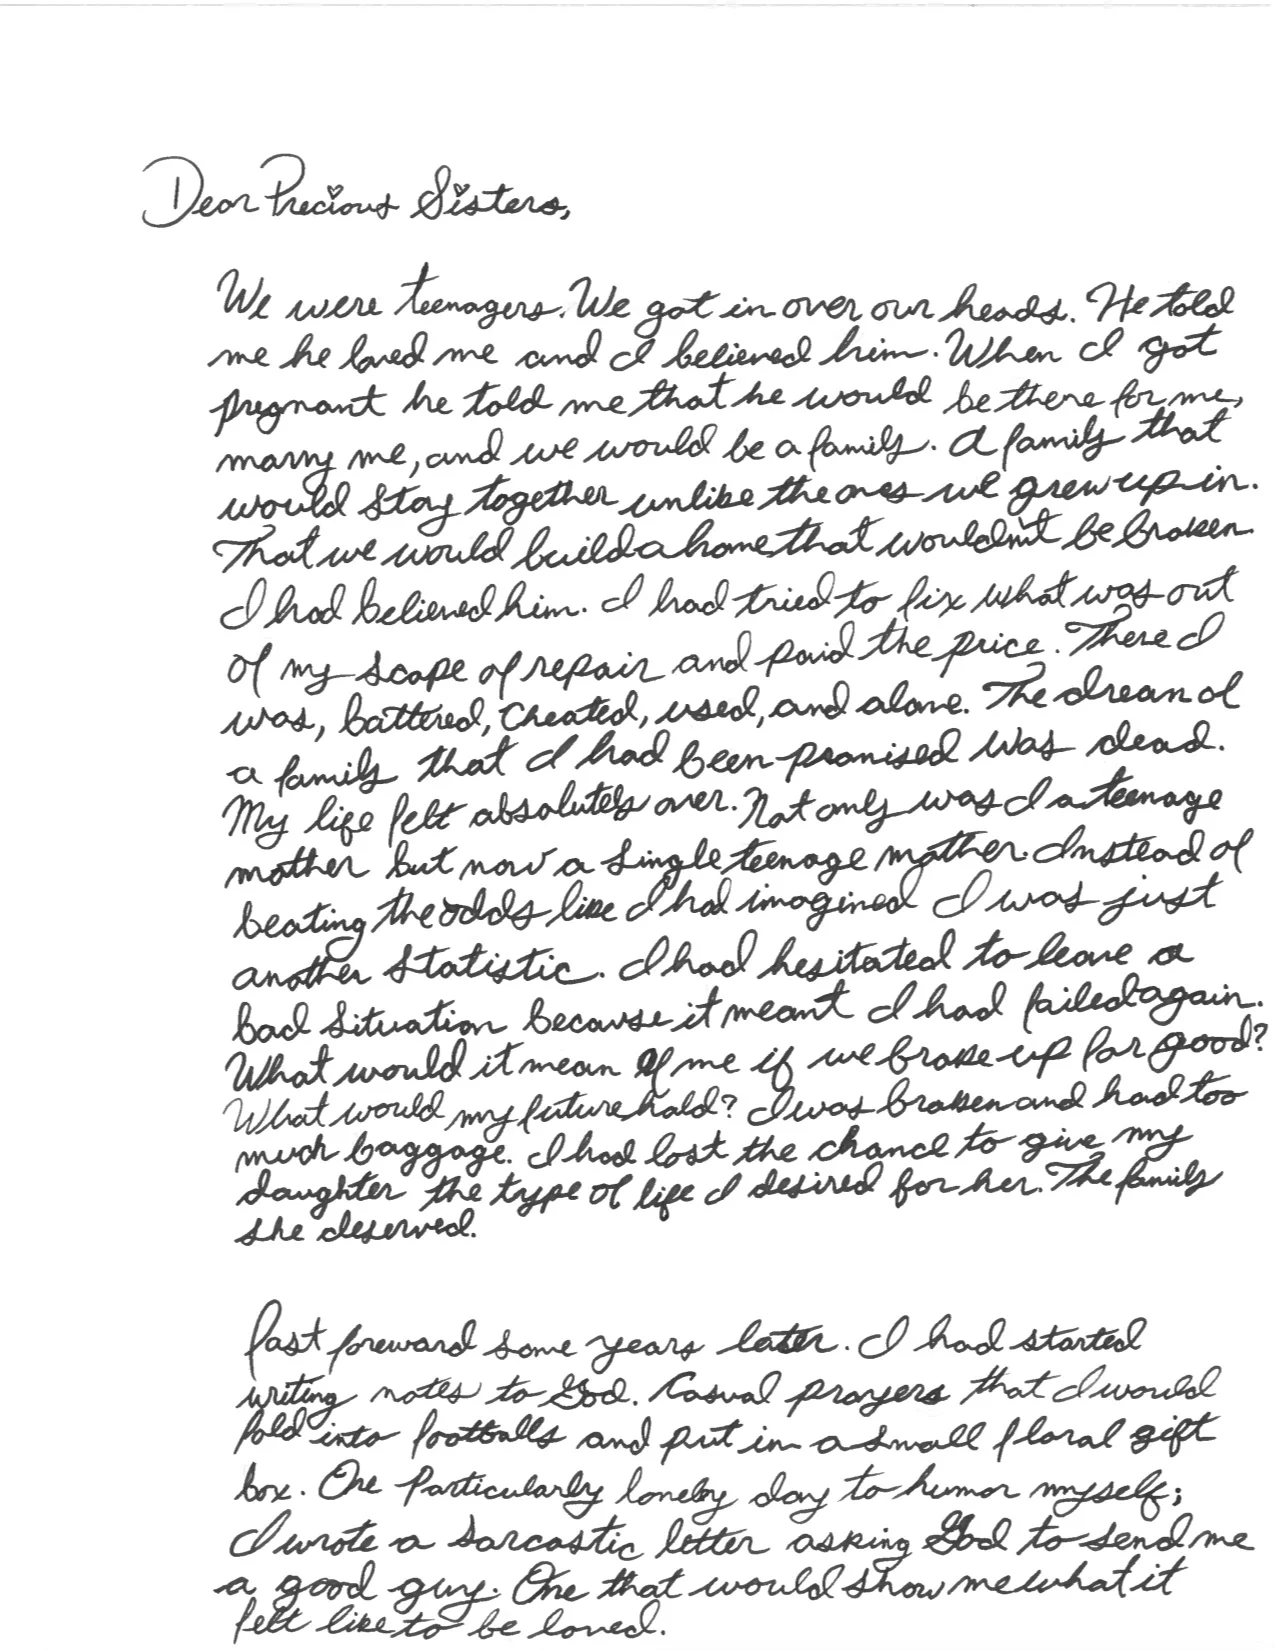 Dear Precious Sisters,
We were teenagers. We got in over our heads. He told
me he loved me and I believed him. When I got
pregnant he told me that he would be there for me,
marry me, and we would be a family. A family that
would stay together unlike the ones we grew up in.
That we would build a home that wouldn't be broken.
I had believed him. I had tried to fix what was out
of my scope of repair and paid the price. There I
was, battered, cheated, used, and alone. The dream of
a family that I had been promised was dead.
My life felt absolutely over. Not only was I a teenage
mother but now a single teenage mother. Instead of
beating the odds like I had imagined I was just
another statistic. I had hesitated to leave a
bad situation because it meant I had failed again.
What would it mean of me if we broke up for good?
What would my future hold? I was broken and had too
much baggage. I had lost the chance to give my
daughter the type of life I desired for her. The family
she deserved.
Fast foreward some years later. I had started
writing notes to God. Casual prayers that I would
fold into footballs and put in a small floral gift
box. One particularly lonely day to humor myself;
I wrote a sarcastic letter asking God to send me
a good guy. One that would show me what it
felt like to be loved.